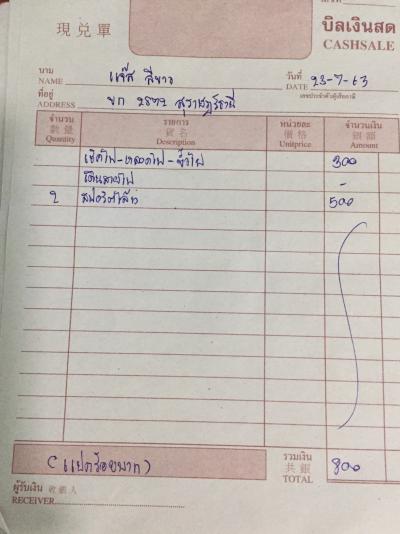 現兌單
บิลเงินสด
CASHSALE
นาม
NAME แจ๊ส สีขาว
วันที่
DATE 23-7-63
ที่อยู่
ADDRESS บก 2572 สุราษฎร์ธานี
เลขประจำตัวผู้เสียภาษี
จำนวน รายการ หน่วยละ จำนวนเงิน
數量 貨名 價格 銀額
Quantity Description Unitprice Amount
เช็คไฟ-หลอดไฟ-ขั้วไฟ 300
เดินสายไฟ -
2 500
(แปดร้อยบาท)
รวมเงิน
共銀
TOTAL 800
ผู้รับเงิน 收銀人
RECEIVER